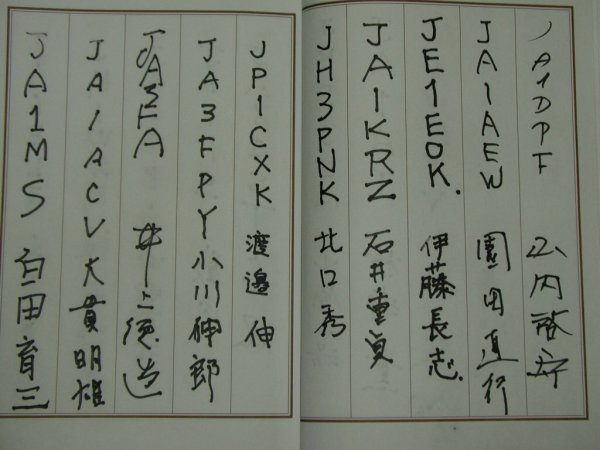 JA1DPF 山内
JA1AEW 園田直行
JE1EOK. 伊藤長志.
JA1KRZ 石井重貞
JH3PNK 北口秀
JP1CXK 渡邉伸
JA3FPY 小川伸郎
JA3FA 井上徳造
JA1ACV 大貫明雄
JA1MS 臼田育三